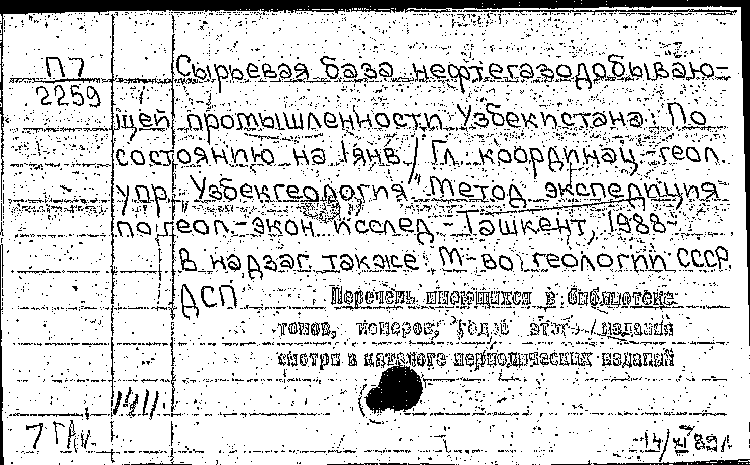 П7
2259
Сырьевая база нефтегазодобываю-
щей промышленности Узбекистана: По
состоянию на 1 янв. / Гл. координац.-геол.
упр. "Узбекгеология". Метод. экспедиция
по геол.-экон. исслед. - Ташкент, 1988-
В надзаг. также: М-во геологии СССР
ДСП
Перечень имеющихся в библиотеке
томов, номеров, годов этого издания
смотри в каталоге периодических изданий
14/XI 89